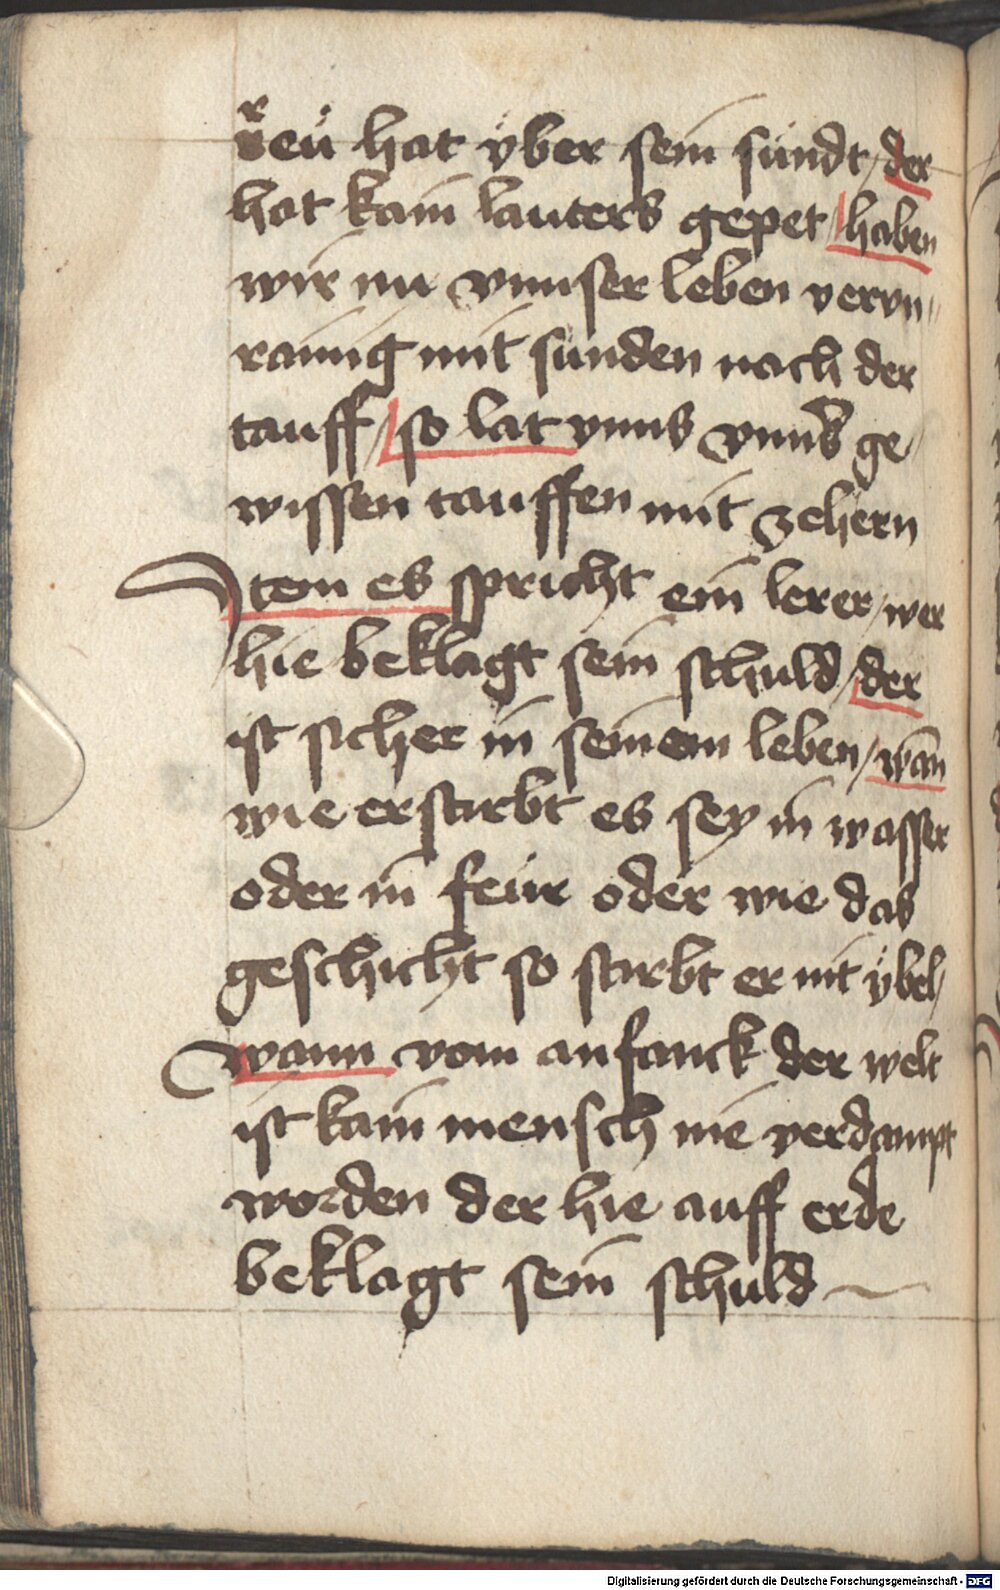 reü hat über sein sündt / der
hat kain lauters gepet / haben
wir nu vnnser leben verun„
rainig mit sunden nach der
tauff / so lat vnns vnns ge„
wissen tauffen mit zehern
Item es spricht ein lerer / wer
hie beklagt sein schuld / der
ist sicher in seinem leben / wan̄
wie er stirbt es sey in wasser
oder in feür oder wie das
geschicht so stirbt er nit ÿbel /
wann vom anfanck der welt
ist kain mensch nie verdampt
worden der hie auff erde
beklagt sein schuld
Digitalisierung gefördert durch die Deutsche Forschungsgemeinschaft - DFG